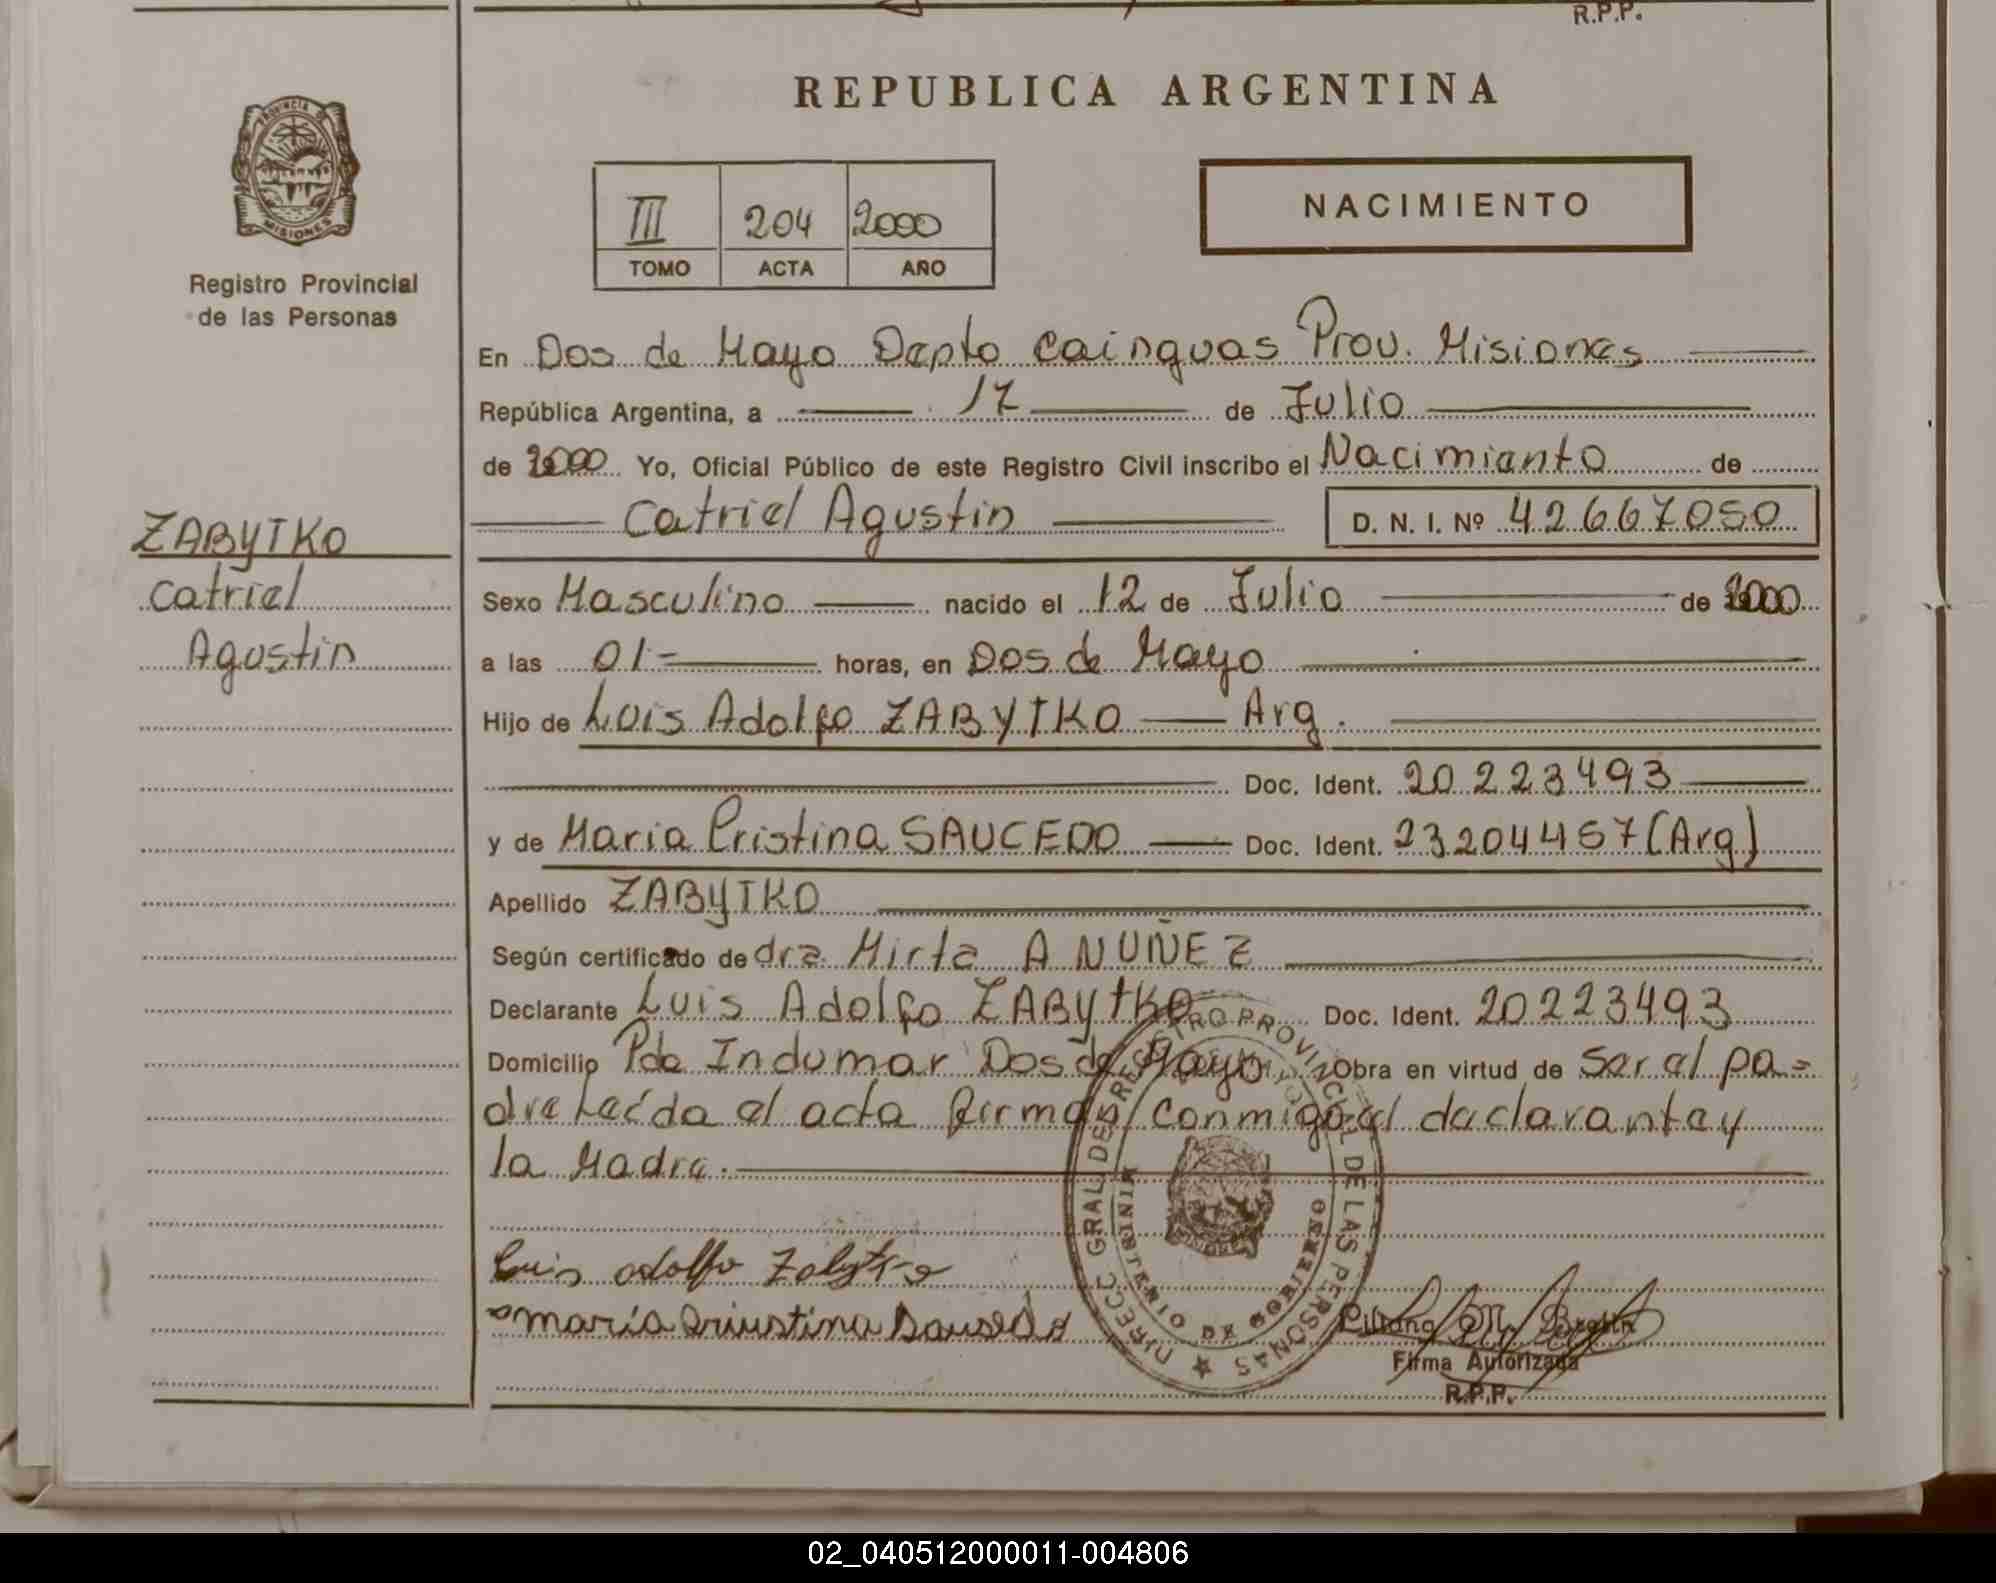 R.P.P.
PROVINCIA DE
MISIONES
Registro Provincial
de las Personas
REPUBLICA ARGENTINA
III 204 2000
TOMO ACTA AÑO
NACIMIENTO
En Dos de Mayo Depto Cainguas Prov. Misiones
República Argentina, a 17 de Julio
de 2000 Yo, Oficial Público de este Registro Civil inscribo el Nacimiento de
Catriel Agustin D. N. I. Nº 42667050
ZABYTKO
Catriel
Agustin
Sexo Masculino nacido el 12 de Julio de 2000
a las 01- horas, en Dos de Mayo
Hijo de Luis Adolfo ZABYTKO Arg.
Doc. Ident. 20223493
y de Maria Cristina SAUCEDO Doc. Ident. 23204457 (Arg)
Apellido ZABYTKO
Según certificado de dra Mirta A NUÑEZ
Declarante Luis Adolfo ZABYTKO Doc. Ident. 20223493
Domicilio Pdo Indumar Dos de Mayo Obra en virtud de Ser el pa=
dre Leída el acta firman conmigo el declarante y
la Madre.
DIRECC GRAL DE REGISTRO PROVINCIAL DE LAS PERSONAS
MINISTERIO DE GOBIERNO
Luis adolfo Zabytko
maria
Firma Autorizada
R.P.P.
02_040512000011-004806